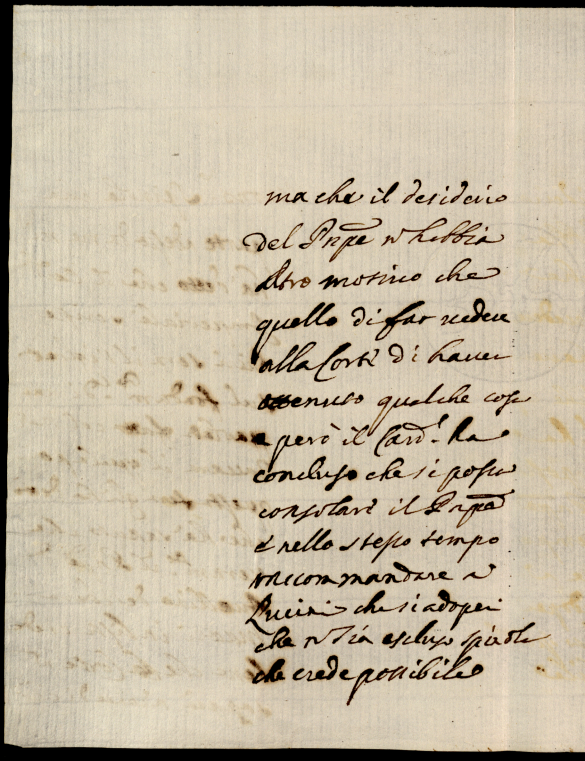 ma che il desiderio
del Prpe n habbia
altro motivo che
quello di far vedere
alla Corte di haver
ottenuto qualche cosa
e però il Card.l ha
concluso che si possa
consolare il Prpe
e nello stesso tempo
raccommandare a
che si adoperi
che n sia escluso
che crede possibile